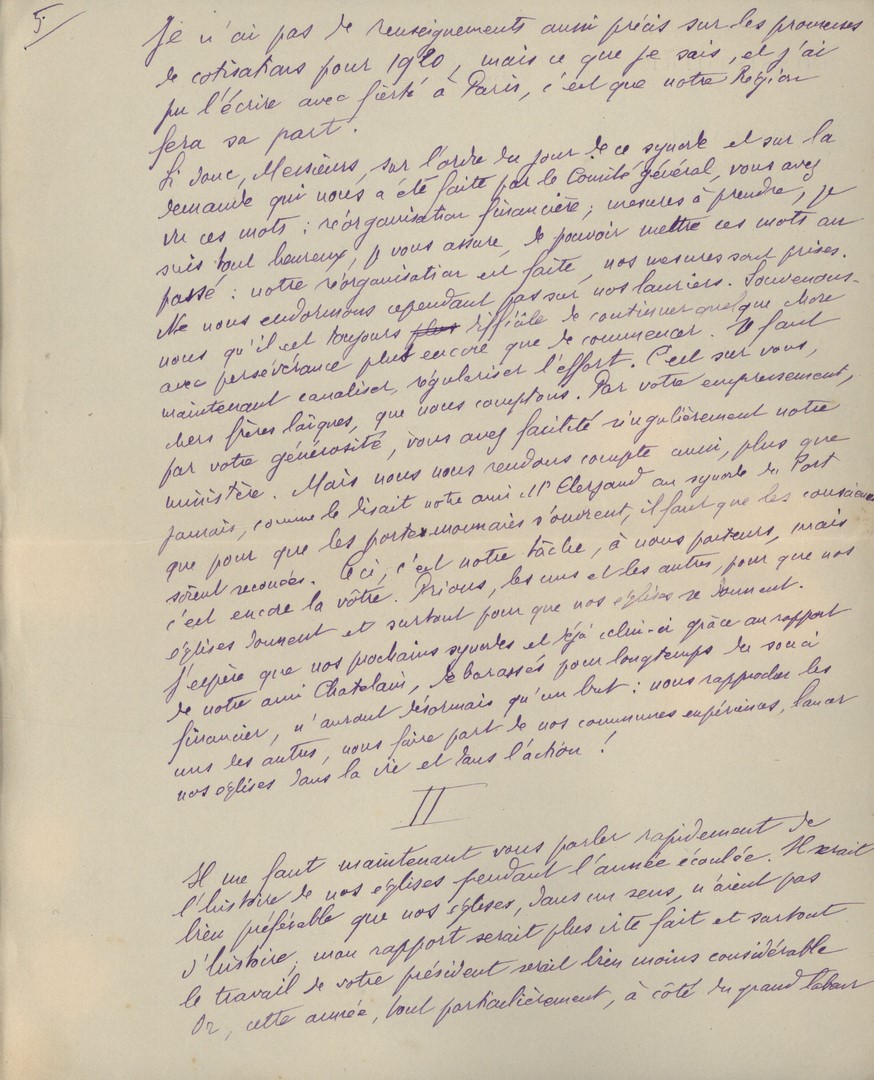 5.
Je n'ai pas de renseignements aussi précis sur les promesses
de cotisations pour 1920, mais ce que je sais, et j'ai
pu l'écrire avec fierté à Paris, c'est que notre Région
fera sa part.
Si donc, Messieurs, sur l'ordre du jour de ce synode et sur la
demande qui nous a été faite par le Comité général, vous avez
vu ces mots : réorganisation financière ; mesures à prendre, je
suis tout heureux, je vous assure, de pouvoir mettre ces mots au
passé : notre réorganisation est faite, nos mesures sont prises.
Ne nous endormons cependant pas sur nos lauriers. Souvenons-
nous qu'il est toujours plus difficile de continuer quelque chose
avec persévérance plus encore que de commencer. Il faut
maintenant canaliser, régulariser l'effort. C'est sur vous,
chers frères laïques, que nous comptons. Par votre empressement,
par votre générosité, vous avez facilité singulièrement notre
ministère. Mais nous nous rendons compte aussi, plus que
jamais, comme le disait notre ami Mr au synode du
que pour que les porte-monnaies s'ouvrent, il faut que les consciences
soient secouées. Ceci, c'est notre tâche, à nous pasteurs, mais
c'est encore la vôtre. Prions, les uns et les autres, pour que nos
églises donnent et surtout pour que nos églises se donnent.
J'espère que nos prochains synodes et déjà celui-ci grâce au rapport
de notre ami Chatelain, débarassés pour longtemps du souci
financier, n'auront désormais qu'un but : nous rapprocher les
uns les autres, nous faire part de nos communes expériences, lancer
nos églises dans la vie et dans l'action !
II
Il me faut maintenant vous parler rapidement de
l'histoire de nos églises pendant l'année écoulée. Il serait
bien préférable que nos églises, dans un sens, n'aient pas
d'histoire, mon rapport serait plus vite fait et surtout
le travail de votre président serait bien moins considérable
Or, cette année, tout particulièrement, à côté du grand labeur